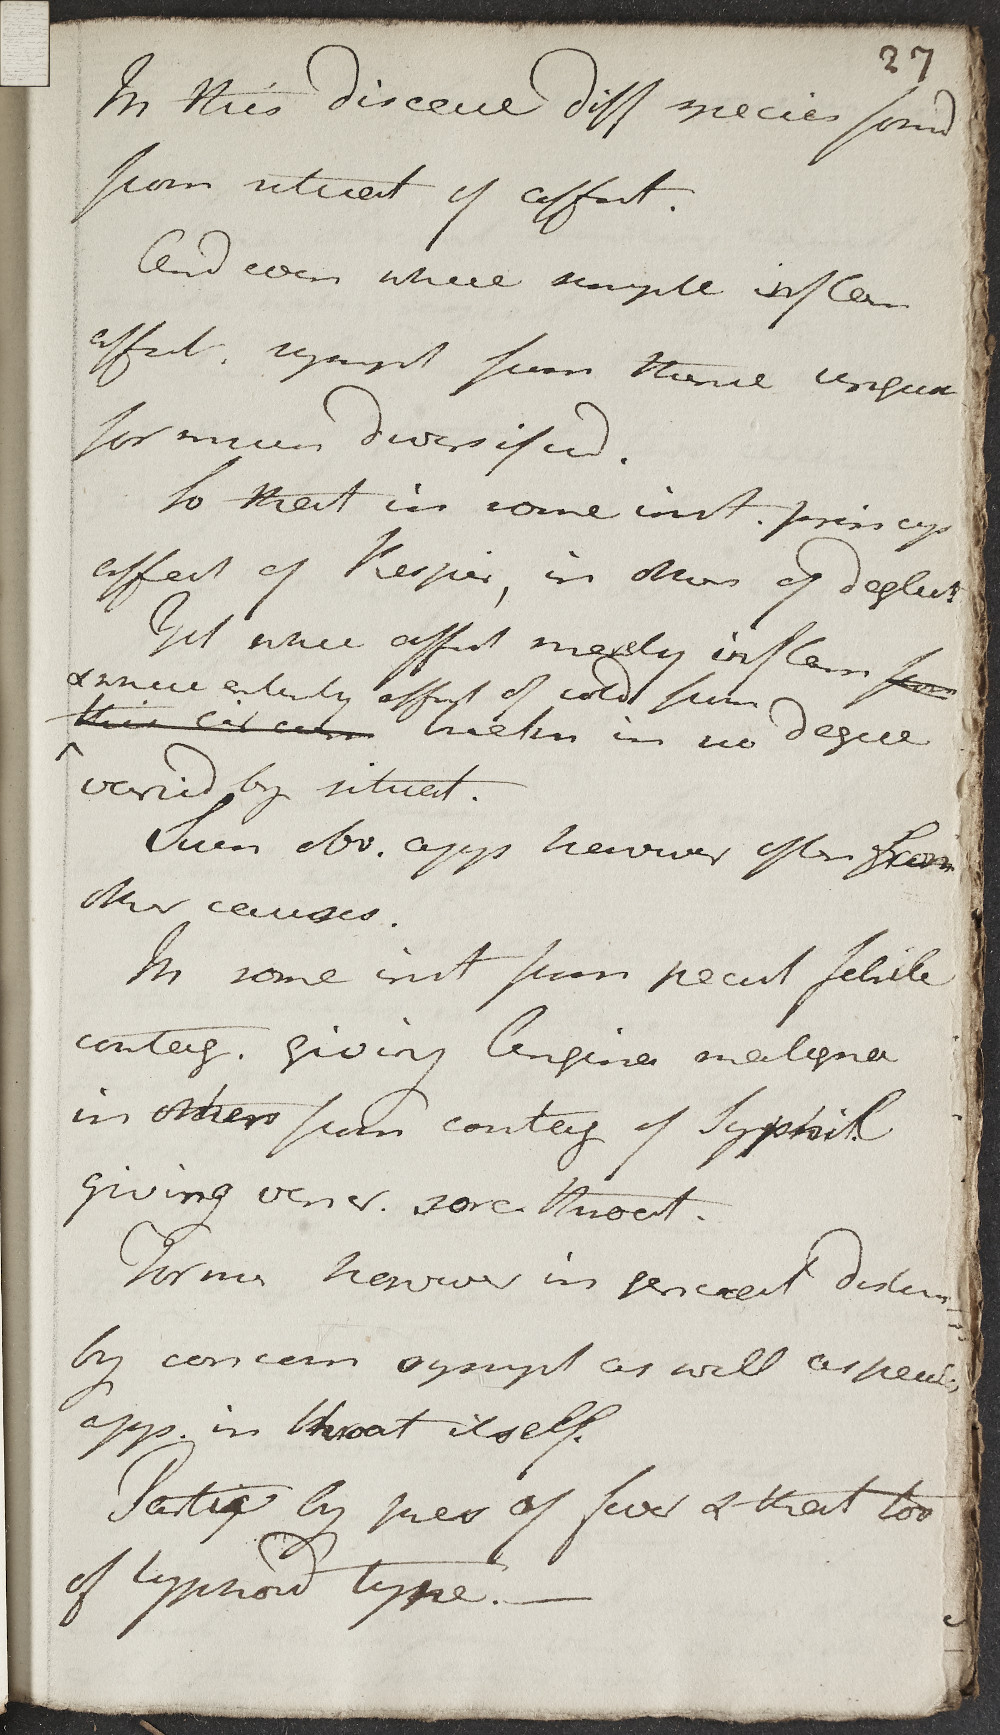 27
In this disease diff species formd
from situat of affect.
And even where simple inflam
affect. sympt from thence
for much diversified.
So that in some inst. princip
affect of Respir, in others of deglut
Yet when affect merely inflam from
& where entirely affect of cold from
this circum treatm in no degree
varied by situat.
Such obv. app however often from
other causes.
In some inst from pecul febrile
contag. giving Angina maligna
in others from contag of Syphil
giving vener. sore throat.
Former however in general distin
by concom sympt as well as pecul
app. in throat itself.
Partic by pres of fever & that too
of typhoid type.—